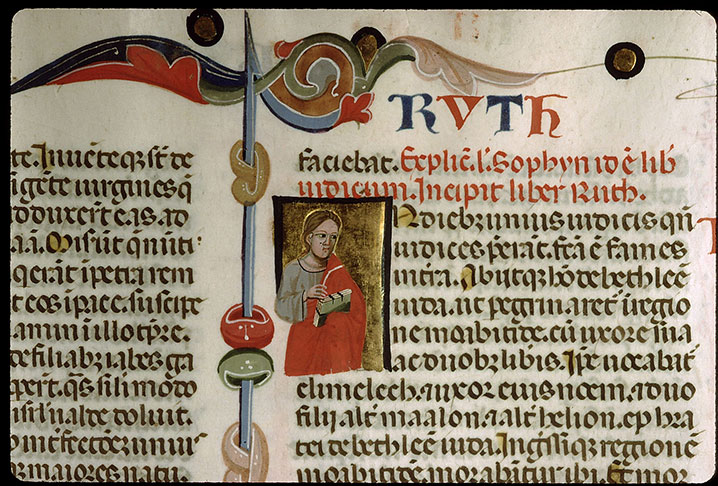 RVTH
te. Inuēte qȝ sȓ de
igēte uirgines q̄
adduxer̄t eas. ad
Misūt qȝ nūti
q̄ erāt i petra rem
t eos i pace. suscipe
iamin i illo tp̄re.
de filiabȝ iabes ga
sil'i modo
ualde doluit.
maiores natu.
faciebat. Explic̄. l'. Sophyn id ē lib̄
iudicum. Incipit liber Ruth.
N diebȝ unius iudicis qn̄
iudices p̄erāt. fc̄a ē fames
in t̄ra. Abiitqȝ hō de bethleē
iuda. ut pegrinaret̄ i regio
ne moabitide. cū uxore sua
ac duobȝ libis. Ipē uocabat̄
elimelech. ⁊ uxor eius noem. ⁊ duo
filij alt̄ maalon. ⁊ alt̄ helion. ephra
tei de bethleē iuda. Ingr̄ssiqȝ regionē
moabitidē morabātur ibi. Et mor